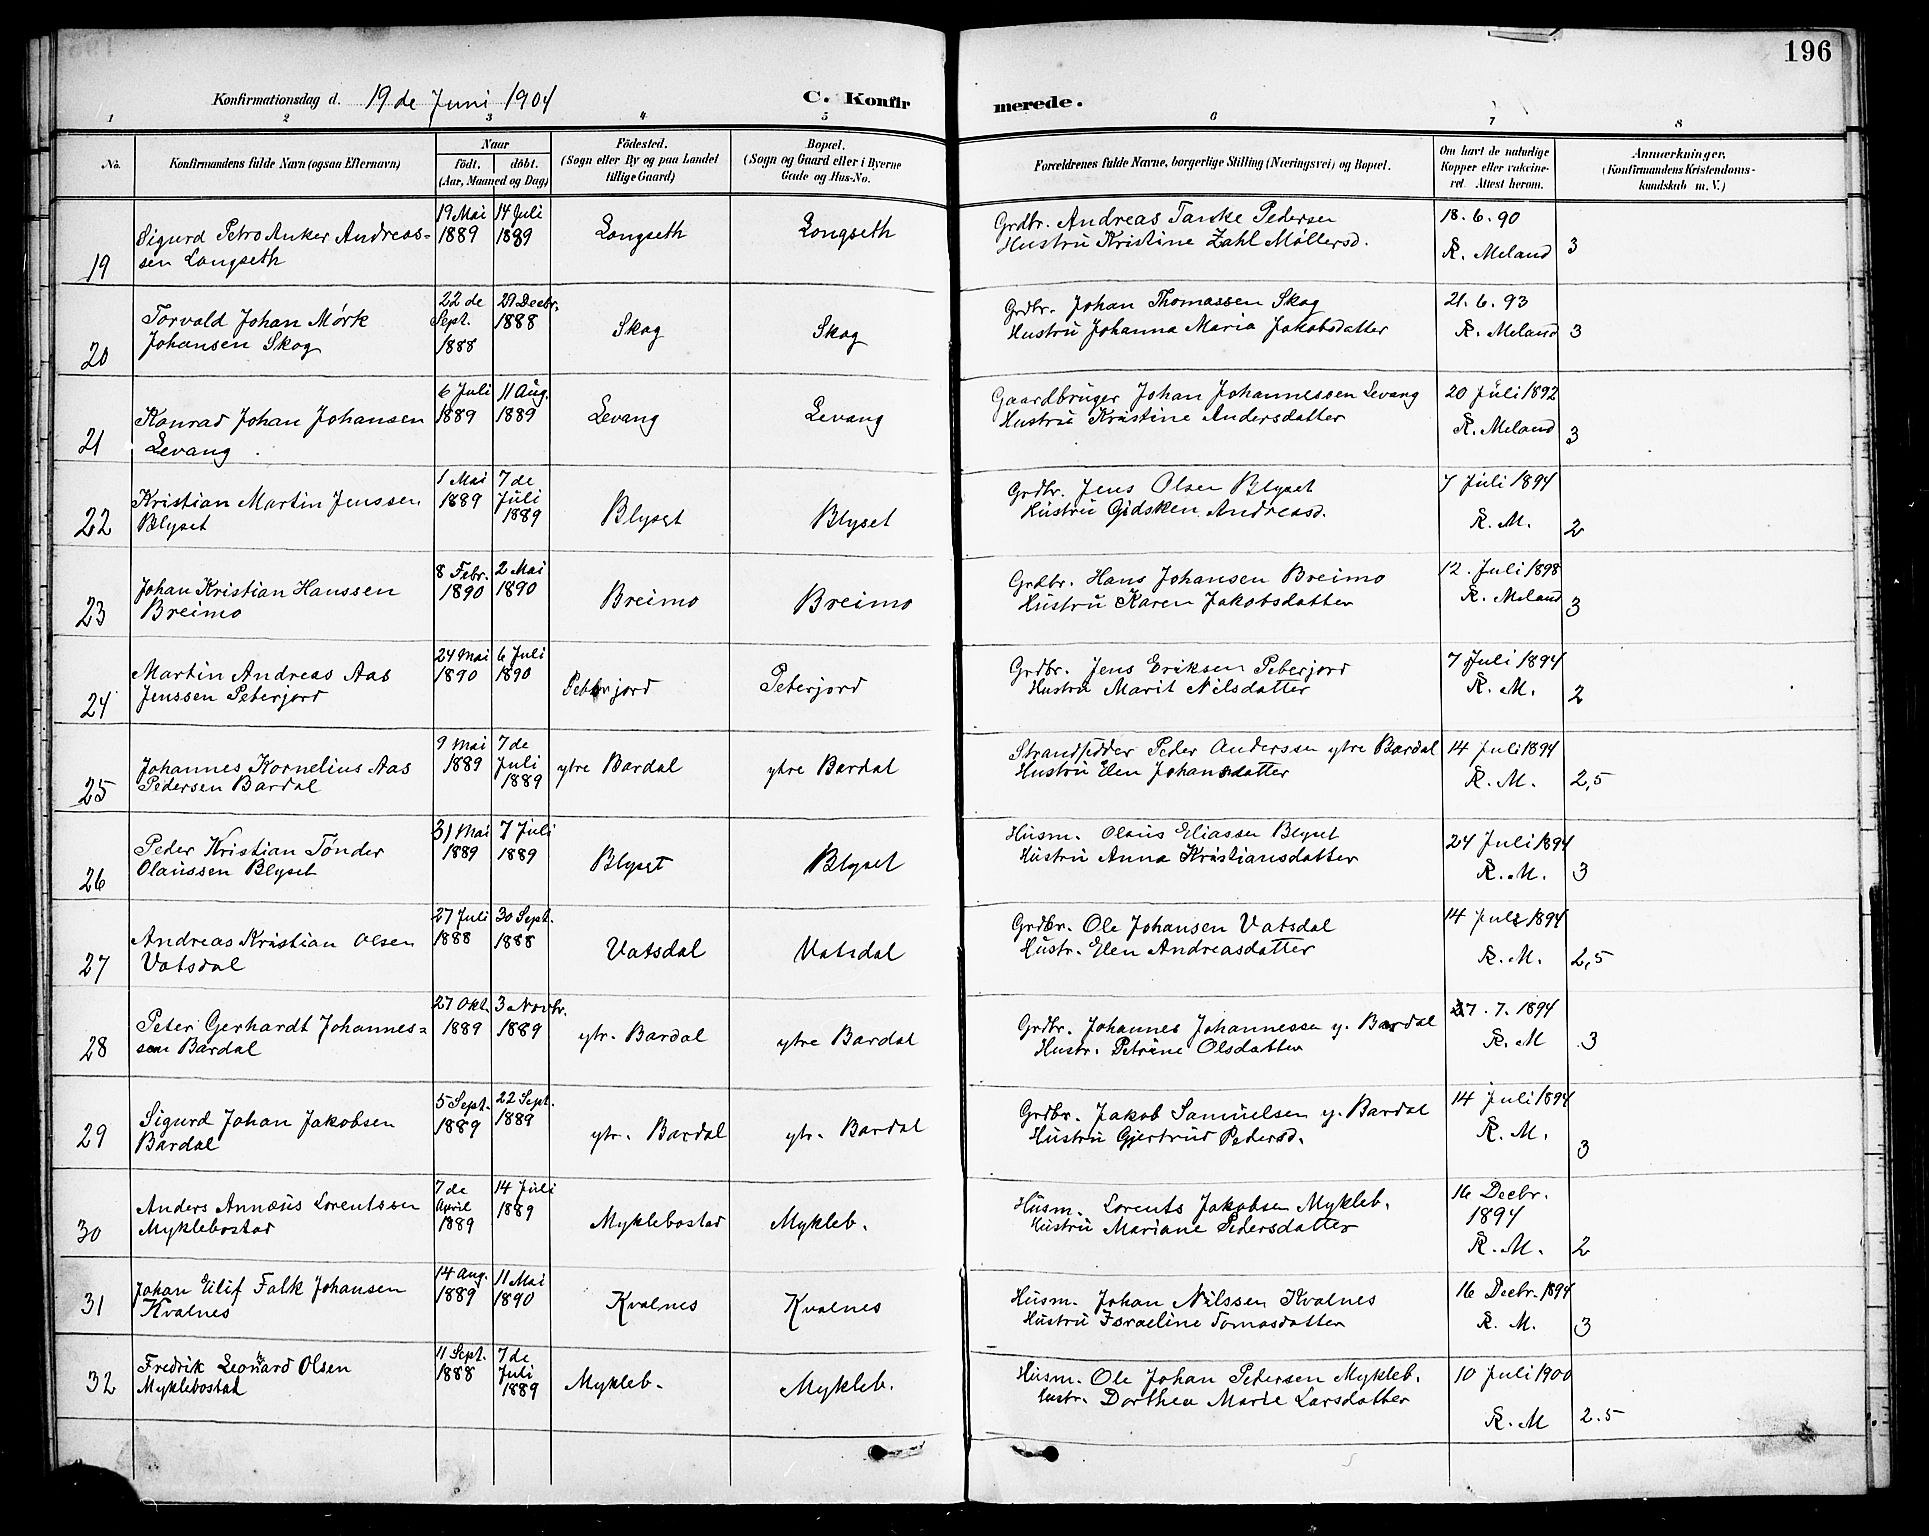 196
Konfirmationsdag d. 19 de Juni 1904
C. Konfir merede.
1 2 3 4 5 6 7 8
No.
Konfirmandens fulde Navn (ogsaa Efternavn)
Naar
födt. döbt.
(Aar, Maaned og Dag)
Födested.
(Sogn eller By og paa Landet
tillige Gaard)
Bopæl.
(Sogn og Gaard eller i Byerne
Gade og Hus-No.
Forældrenes fulde Navne, borgerlige Stilling (Næringsvei) og Bopæl.
Om havt de naturlige
Kopper eller vakcine-
ret. Attest herom.
Anmærkninger.
(Konfirmandens Kristendoms-
kundskab m. V.)
19 Sigurd Petro Anker Andreas-
sen Longseth
19 Mai
1889
14 Juli
1889
Longseth
Longseth
Grdbr. Andreas Tanke Pedersen
Hustru Kristine Zahl Møllersd.
18. 6. 90
R. Meland
3
20 Torvald Johan Mørk
Johansen Skog
22 de
Sept.
1888
29 Decbr.
1888
Skog
Skog
Grdbr. Johan Thomassen Skog
Hustru Johanna Maria Jakobsdatter
21. 6. 93
R. Meland
3
21 Konrad Johan Johansen
Levang
6 Juli
1889
11 Aug.
1889
Levang
Levang
Gaardbruger Johan Johannessen Levang
Hustru Kristine Andersdatter
20 Juli 1892
R. Meland
3
22 Kristian Martin Jenssen
Blyset
1 Mai
1889
7 de
Juli
1889
Blyset
Blyset
Grdbr. Jens Olsen Blyset
Hustru Gidsken Andreasd.
7 Juli 1894
R. M.
2
23 Johan Kristian Hanssen
Breimo
8 Febr.
1890
2 Mai
1890
Breimo
Breimo
Grdbr. Hans Johansen Breimo
Hustru Karen Jakobsdatter
12. Juli 1898
R. Meland
3
24 Martin Andreas Aas
Jenssen Peterjord
24 Mai
1890
6 Juli
1890
Peterjord
Peterjord
Grdbr. Jens Eriksen Peterjord
Hustru Marit Nilsdatter
7 Juli 1894
R. M.
2
25 Johannes Kornelius Aas
Pedersen Bardal
9 Mai
1889
7 de
Juli
1889
ytre Bardal
ytre Bardal
Strandsidder Peder Anderssen ytre Bardal
Hustru Elen Johansdatter
14 Juli 1894
R. M.
2,5
26 Peder Kristian Tönder
Olaussen Blyset
31 Mai
1889
7 Juli
1889
Blyset
Blyset
Husm. Olaus Eliassen Blyset
Hustru Anna Kristiansdatter
24 Juli 1894
R. M.
3
27 Andreas Kristian Olsen
Vatsdal
27 Juli
1888
30 Sept.
1888
Vatsdal
Vatsdal
Grdbr. Ole Johansen Vatsdal
Hustr. Elen Andreasdatter
14 Juli 1894
R. M.
2,5
28 Peter Gerhardt Johannes-
sen Bardal
27 Okt.
1889
3 Novbr.
1889
ytr. Bardal
ytre Bardal
Grdbr. Johannes Johannessen y. Bardal
Hustr. Petrine Olsdatter
27. 7. 1894
R. M
3
29 Sigurd Johan Jakobsen
Bardal
5 Sept.
1889
22 Sept.
1889
ytr. Bardal
ytr. Bardal
Grdbr. Jakob Samuelsen y. Bardal
Hustru Gjertrud Pedersd.
14 Juli 1894
R. M.
3
30 Anders Annæus Lorentssen
Myklebostad
7 de
April
1889
14 Juli
1889
Myklebostad
Mykleb.
Husm. Lorents Jakobsen Mykleb.
Hustru Mariane Pedersdatter
16 Decbr.
1894
R. M.
2
31 Johan Eilif Falk Johansen
Kvalnes
14 Aug.
1889
11 Mai
1890
Kvalnes
Kvalnes
Husm. Johan Nilssen Kvalnes
Hustru Israeline Tomasdatter
16 Decbr. 1894
R. M.
3
32 Fredrik Leonhard Olsen
Myklebostad
11 Sept.
1888
7 de
Juli
1889
Mykleb.
Mykleb.
Husm. Ole Johan Pedersen Mykleb.
Hustr. Dorthea Marie Larsdatter
10 Juli 1900
R. M
2.5